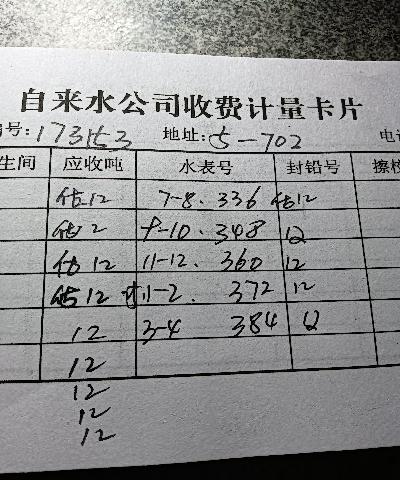 自来水公司收费计量卡片
号: 173153 地址: 5-702
生间 应收吨 水表号 封铅号
估12 7-8. 336 估12
估12 9-10. 348 12
估12 11-12. 360 12
估12 1-2. 372 12
12 3-4 384 12
12
12
12
12